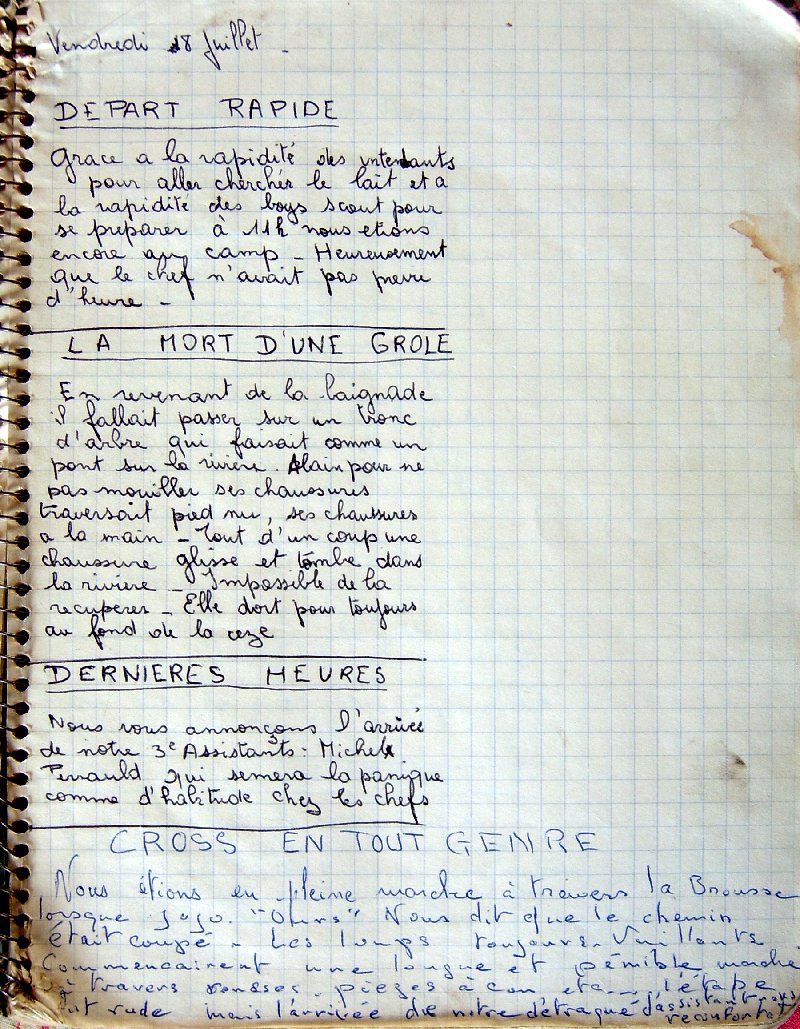 Vendredi 18 Juillet -
DEPART RAPIDE
Grace a la rapidité des intendants
pour aller chercher le lait et a
la rapidité des boys scout pour
se preparer à 11h nous etions
encore au camp - Heureusement
que le chef n'avait pas prevu
d'heure -
LA MORT D'UNE GROLE
En revenant de la baignade
il fallait passer sur un tronc
d'arbre qui faisait comme un
pont sur la riviere. Alain pour ne
pas mouiller ses chaussures
traversait pied nu, ses chaussures
a la main - Tout d'un coup une
chaussure glisse et tombe dans
la riviere - Impossible de la
recuperer - Elle dort pour toujours
au fond de la ceze
DERNIERES HEURES
Nous vous annonçons l'arrivée
de notre 3e Assistants : Michel
Perrauld qui semera la panique
comme d'habitude chez les chefs
CROSS EN TOUT GENRE
Nous étions en pleine marche à travers la Brousse
lorsque jojo. "Ours" Nous dit que le chemin
était coupé - Les loups toujours Vaillants
Commencairent une longue et pénible marche
à travers ronces, pièges à con etc.... l'étape
fut rude mais l'arrivée de notre détraqué d'assistant
reconforta